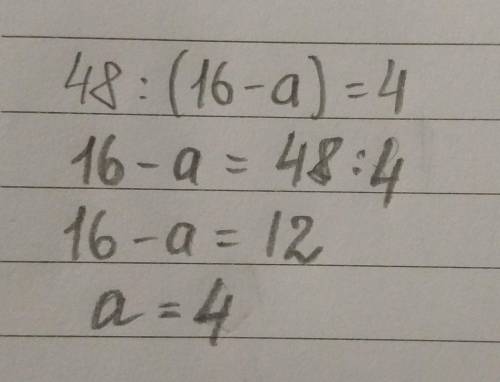 48 : (16 - a) = 4
16 - a = 48 : 4
16 - a = 12
a = 4